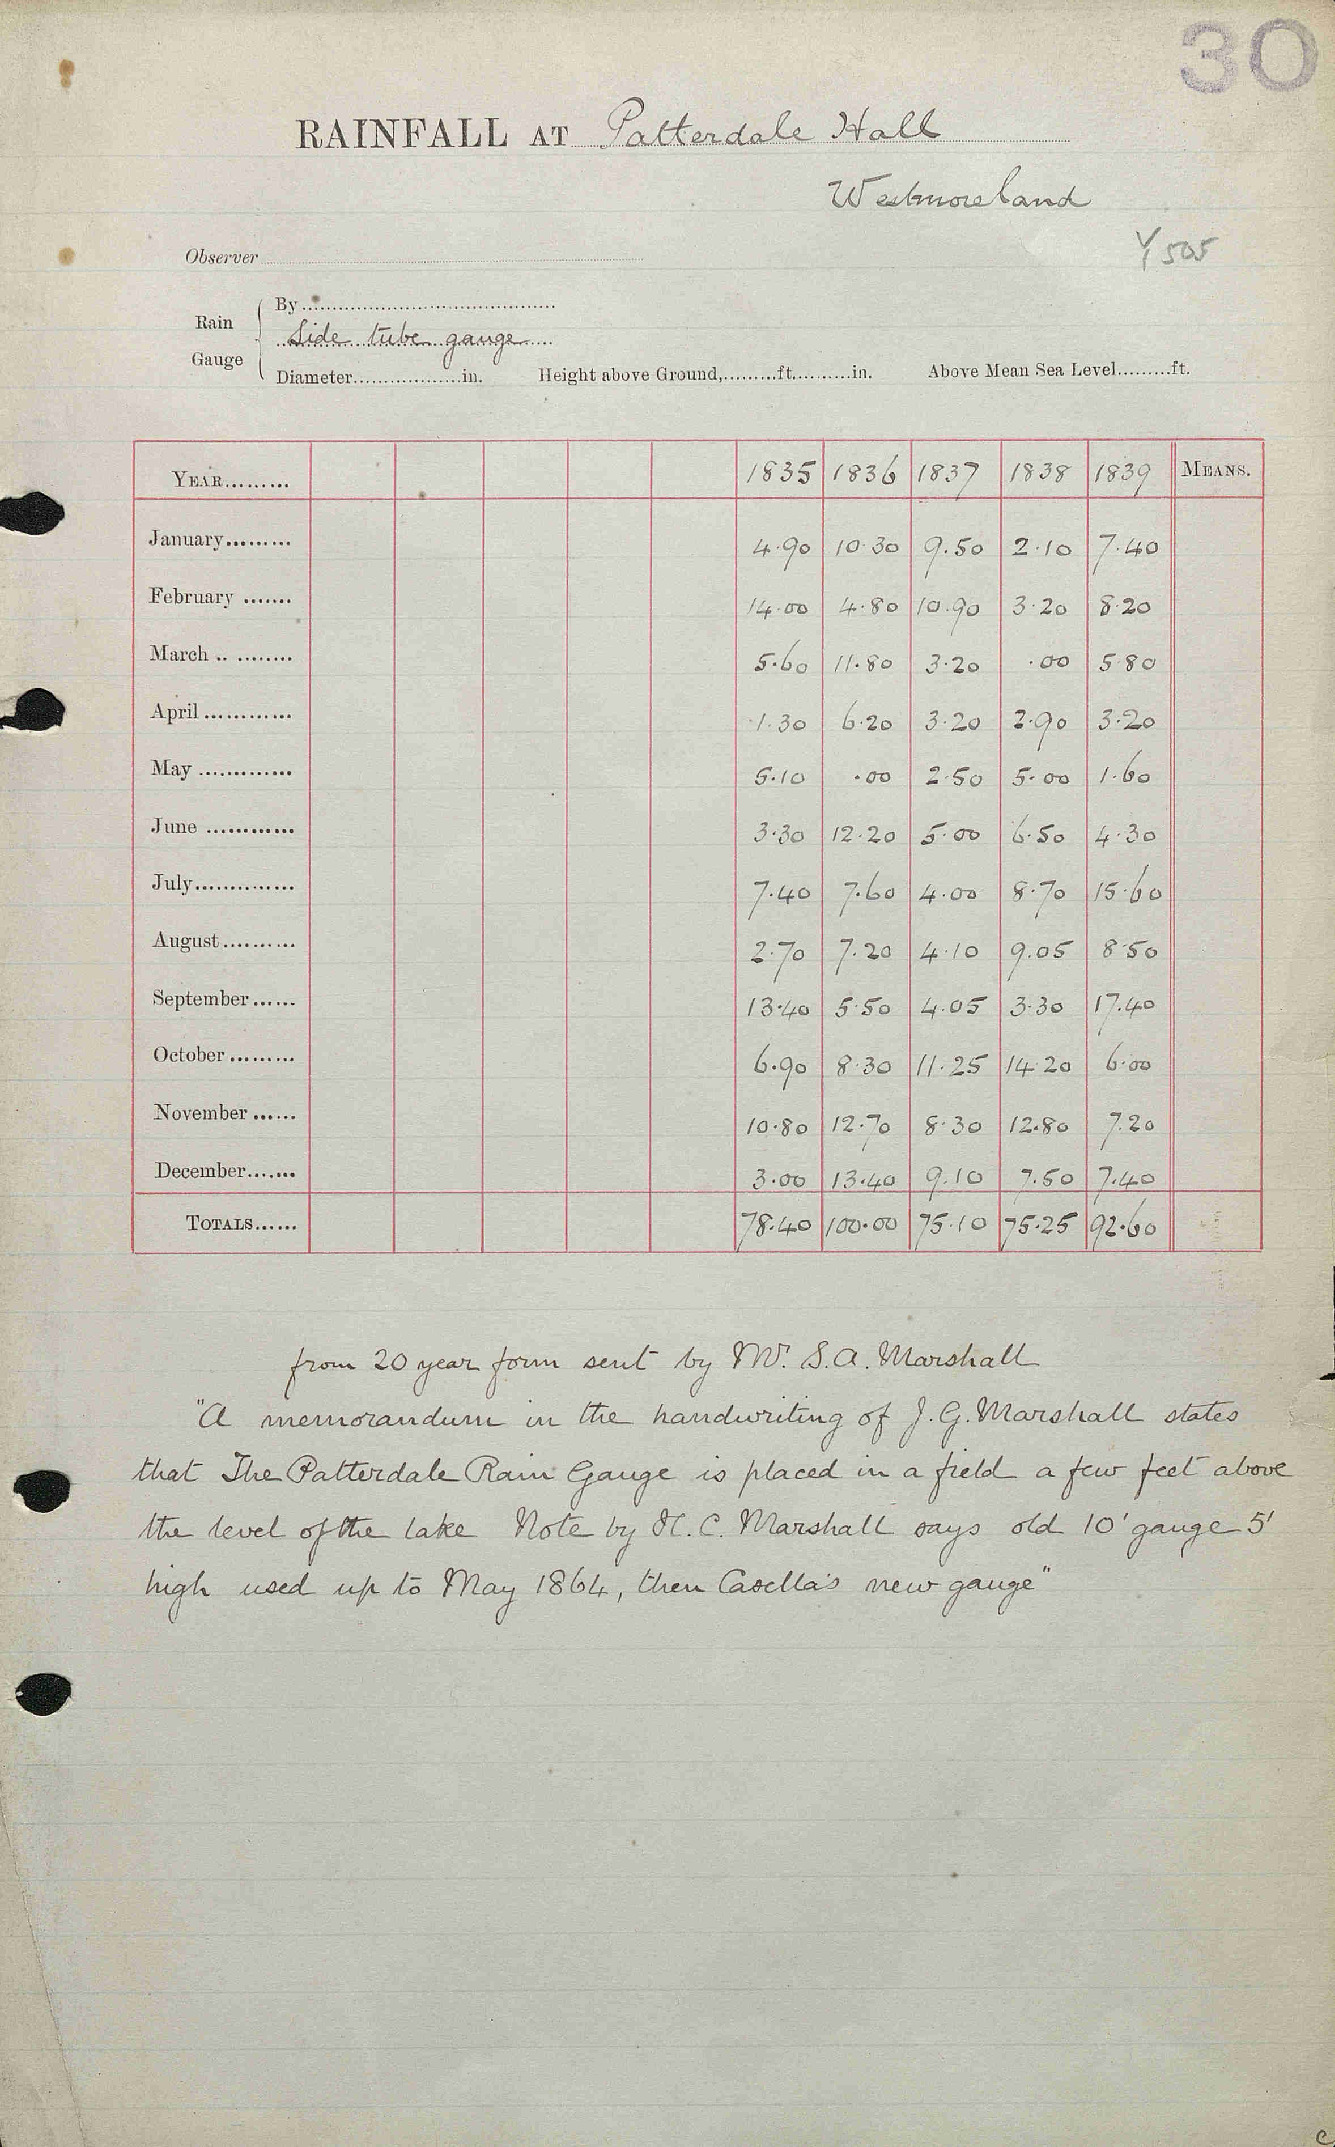 30
RAINFALL AT Patterdale Hall
Westmoreland
Y 505
Observer
Rain Gauge
By
Side tube gauge
Diameter..................in. Height above Ground,.........ft..........in. Above Mean Sea Level.........ft.
YEAR......... 1835 1836 1837 1838 1839 MEANS.
January......... 4.90 10.30 9.50 2.10 7.40
February ....... 14.00 4.80 10.90 3.20 8.20
March .. ........ 5.60 11.80 3.20 .00 5.80
April ............. 1.30 6.20 3.20 2.90 3.20
May .............. 5.10 .00 2.50 5.00 1.60
June ............. 3.30 12.20 5.00 6.50 4.30
July............... 7.40 7.60 4.00 8.70 15.60
August........... 2.70 7.20 4.10 9.05 8.50
September...... 13.40 5.50 4.05 3.30 17.40
October ......... 6.90 8.30 11.25 14.20 6.00
November ...... 10.80 12.70 8.30 12.80 7.20
December....... 3.00 13.40 9.10 7.50 7.40
TOTALS...... 78.40 100.00 75.10 75.25 92.60
from 20 year form sent by Mr. S.A. Marshall
"A memorandum in the handwriting of J.G. Marshall states
that The Patterdale Rain Gauge is placed in a field a few feet above
the level of the lake Note by H.C. Marshall says old 10' gauge 5'
high used up to May 1864, then Casella's new gauge"